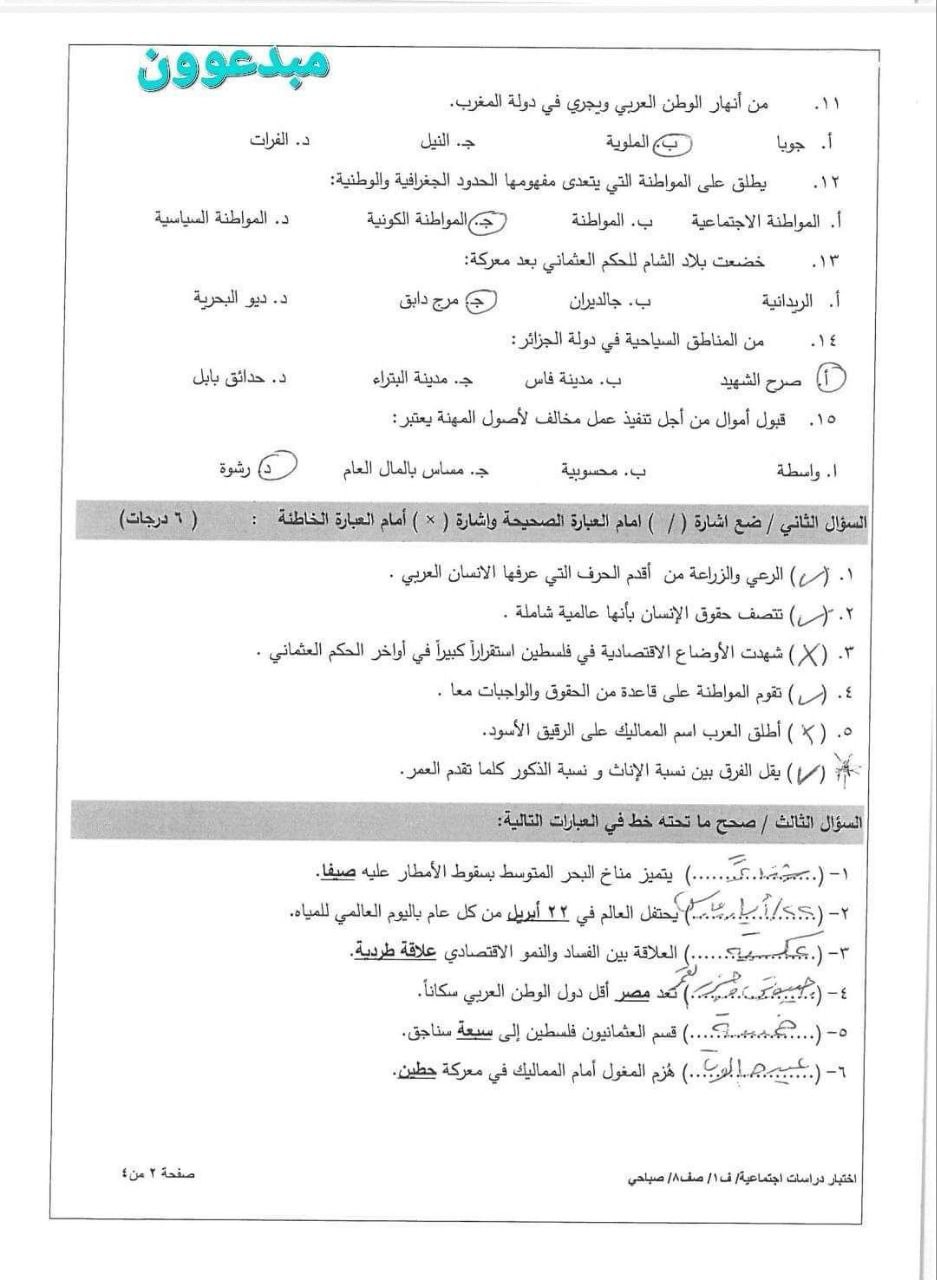 مبدعوون
١١. من أنهار الوطن العربي ويجري في دولة المغرب.
أ. جوبا ب. الملوية جـ. النيل د. الفرات
١٢. يطلق على المواطنة التي يتعدى مفهومها الحدود الجغرافية والوطنية:
أ. المواطنة الاجتماعية ب. المواطنة جـ. المواطنة الكونية د. المواطنة السياسية
١٣. خضعت بلاد الشام للحكم العثماني بعد معركة:
أ. الريدانية ب. جالديران جـ. مرج دابق د. ديو البحرية
١٤. من المناطق السياحية في دولة الجزائر:
أ. صرح الشهيد ب. مدينة فاس جـ. مدينة البتراء د. حدائق بابل
١٥. قبول أموال من أجل تنفيذ عمل مخالف لأصول المهنة يعتبر:
ا. واسطة ب. محسوبية جـ. مساس بالمال العام د. رشوة
السؤال الثاني / ضع اشارة ( / ) امام العبارة الصحيحة واشارة ( × ) أمام العبارة الخاطئة : ( ٦ درجات)
١. (✓) الرعي والزراعة من أقدم الحرف التي عرفها الانسان العربي .
٢. (✓) تتصف حقوق الإنسان بأنها عالمية شاملة .
٣. (X) شهدت الأوضاع الاقتصادية في فلسطين استقراراً كبيراً في أواخر الحكم العثماني .
٤. (✓) تقوم المواطنة على قاعدة من الحقوق والواجبات معا .
٥. (X) أطلق العرب اسم المماليك على الرقيق الأسود.
(✓) يقل الفرق بين نسبة الإناث و نسبة الذكور كلما تقدم العمر.
السؤال الثالث / صحح ما تحته خط في العبارات التالية:
١- (..شتاءً..) يتميز مناخ البحر المتوسط بسقوط الأمطار عليه صيفا.
٢- (......) يحتفل العالم في ٢٢ أبريل من كل عام باليوم العالمي للمياه.
٣- (..عكسية..) العلاقة بين الفساد والنمو الاقتصادي علاقة طردية.
٤- (..جيبوتي، جزر القمر..) تعد مصر أقل دول الوطن العربي سكاناً.
٥- (..خمسة..) قسم العثمانيون فلسطين إلى سبعة سناجق.
٦- (..عين جالوت..) هُزم المغول أمام المماليك في معركة حطين.
اختبار دراسات اجتماعية/ ف١/ صف٨/ صباحي صفحة ٢ من٤